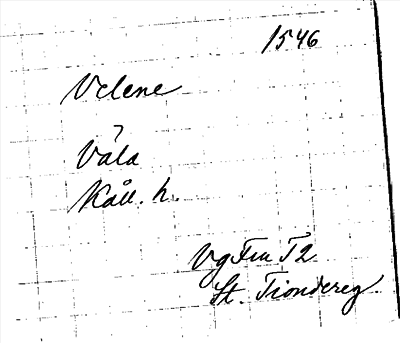 1546
Velene
Våla
Kåll. h.
Vg Fru T2
St. Tiondereg